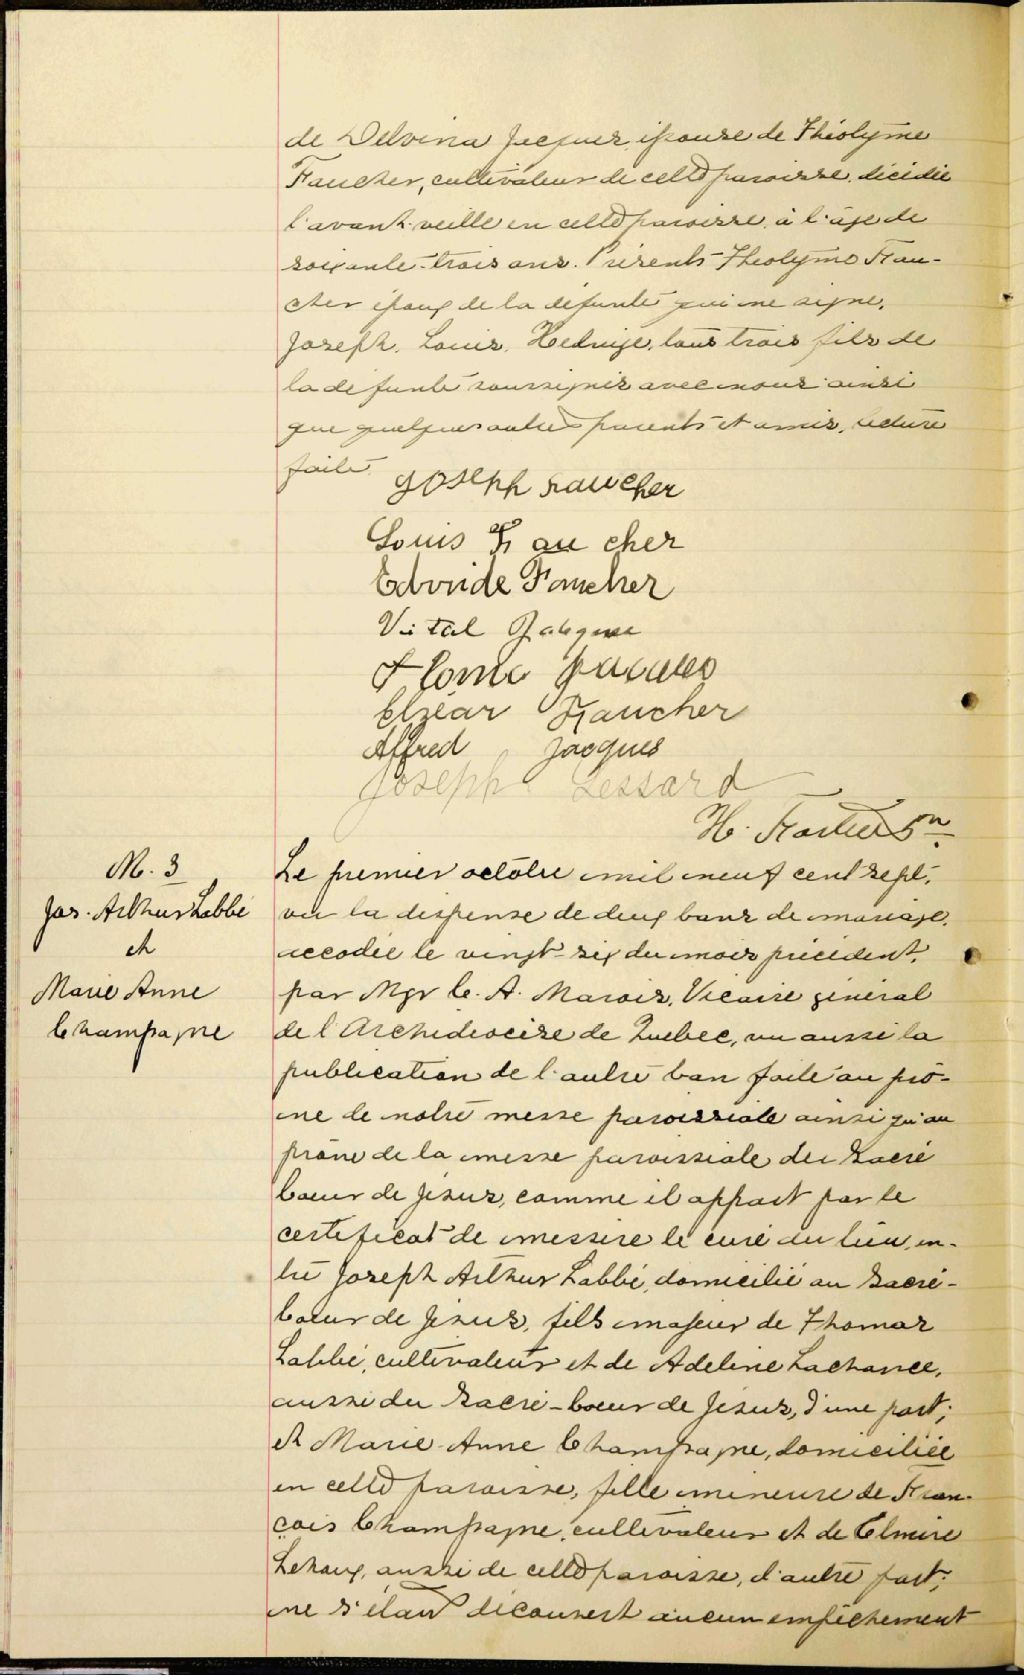 de Delvina Jacques, épouse de Théolyme
Faucher, cultivateur de cette paroisse, décédée
l'avant-veille en cette paroisse, à l'âge de
soixante-trois ans. Présents Théolyme Fau-
cher époux de la défunte qui ne signe,
Joseph, Louis, Hedwige, tous trois fils de
la défunte soussignés avec nous ainsi
que quelques autres parents et amis, lecture
faite.
Joseph Faucher
Louis Faucher
Edvide Faucher
Vital Jacques
Jacques
Elzéar Faucher
Alfred Jacques
Joseph Lessard
H. Fortier
M. 3
Jos. Arthur Labbé
et
Marie Anne
Champagne
Le premier octobre mil neuf cent sept,
vu la dispense de deux bans de mariage,
accodée le vingt-six du mois précédent,
par Mgr C. A. Marois, Vicaire général
de l'Archidiocèse de Québec, vu aussi la
publication de l'autre ban faite au prô-
ne de notre messe paroissiale ainsi qu'au
prône de la messe paroissiale du Sacré
Coeur de Jésus, comme il appert par le
certificat de messire le curé du lieu, en-
tre Joseph Arthur Labbé, domicilié au Sacré-
Coeur de Jésus, fils majeur de Thomas
Labbé, cultivateur et de Adeline Lachance,
aussi du Sacré-Coeur de Jésus, d'une part;
et Marie-Anne Champagne, domiciliée
en cette paroisse, fille mineure de Fran-
çois Champagne, cultivateur et de Elmire
Lehoux, aussi de cette paroisse, d'autre part;
ne s'étant découvert aucun empêchement